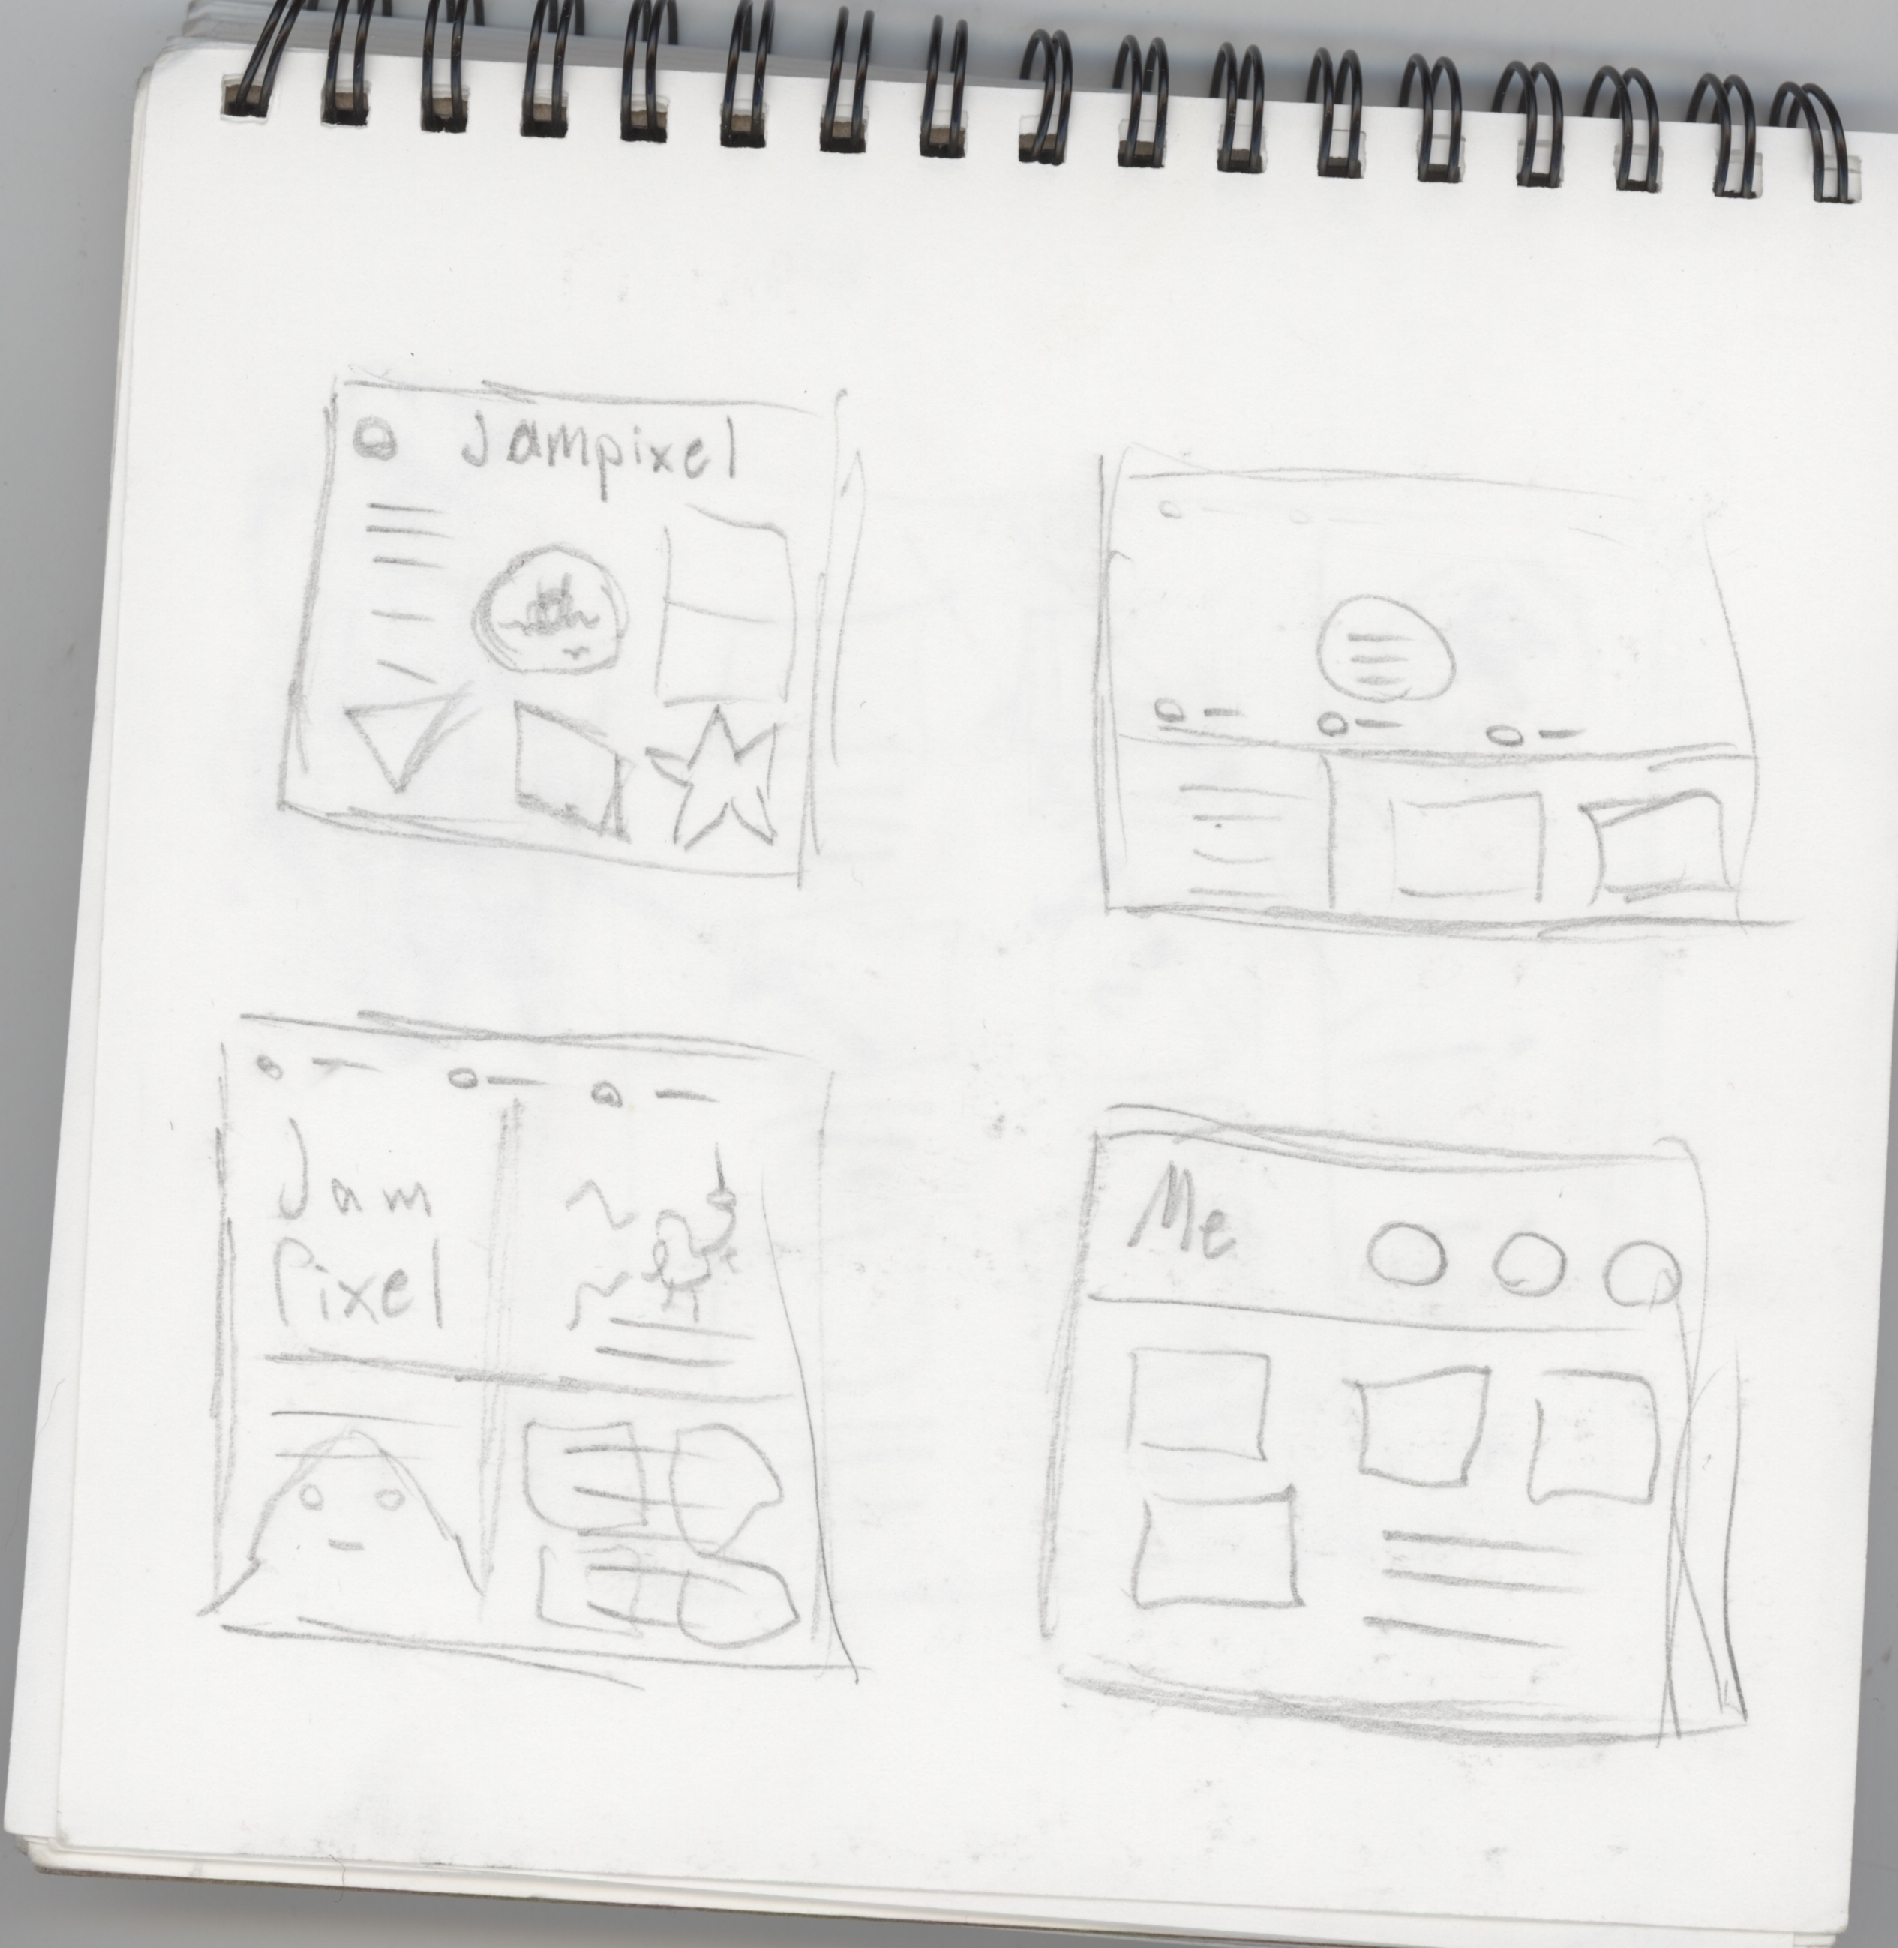 Jampixel
Jam
Pixel
Me